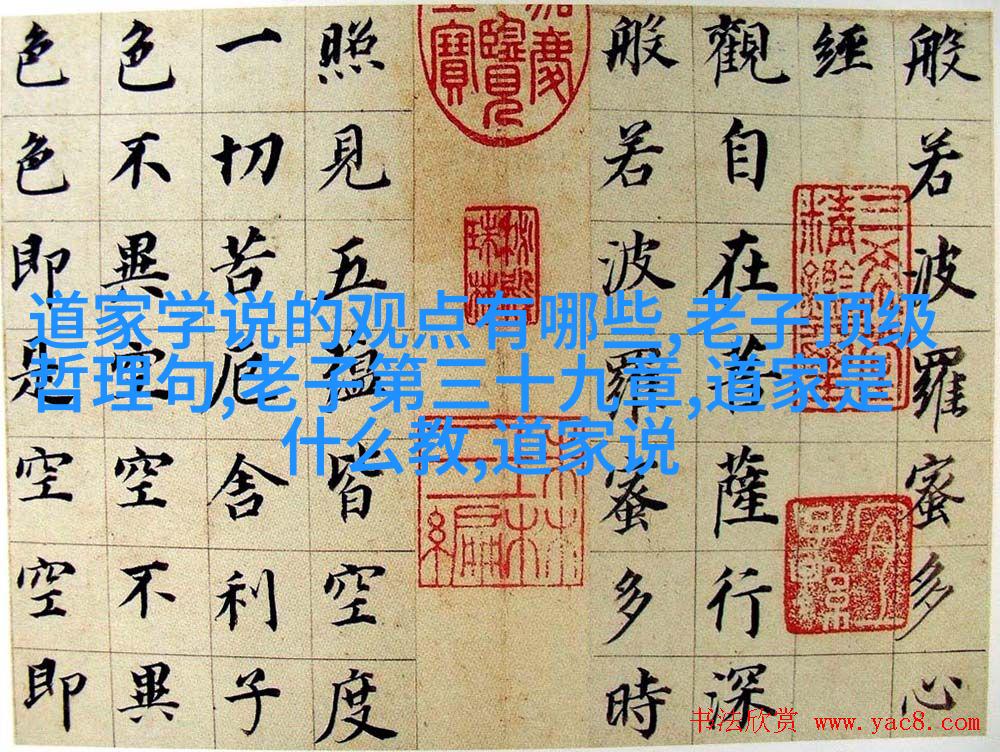 般若波羅蜜多心
經
觀自在菩薩行深
般若波羅蜜多時
照見五蘊皆空度
一切苦厄舍利子
色不異空空不異
色色即是空空即
道家学说的观点有哪些,老子顶级
哲理句,老子第三十九章,道家是
什么教,道家说
书法欣赏 www.yac8.com